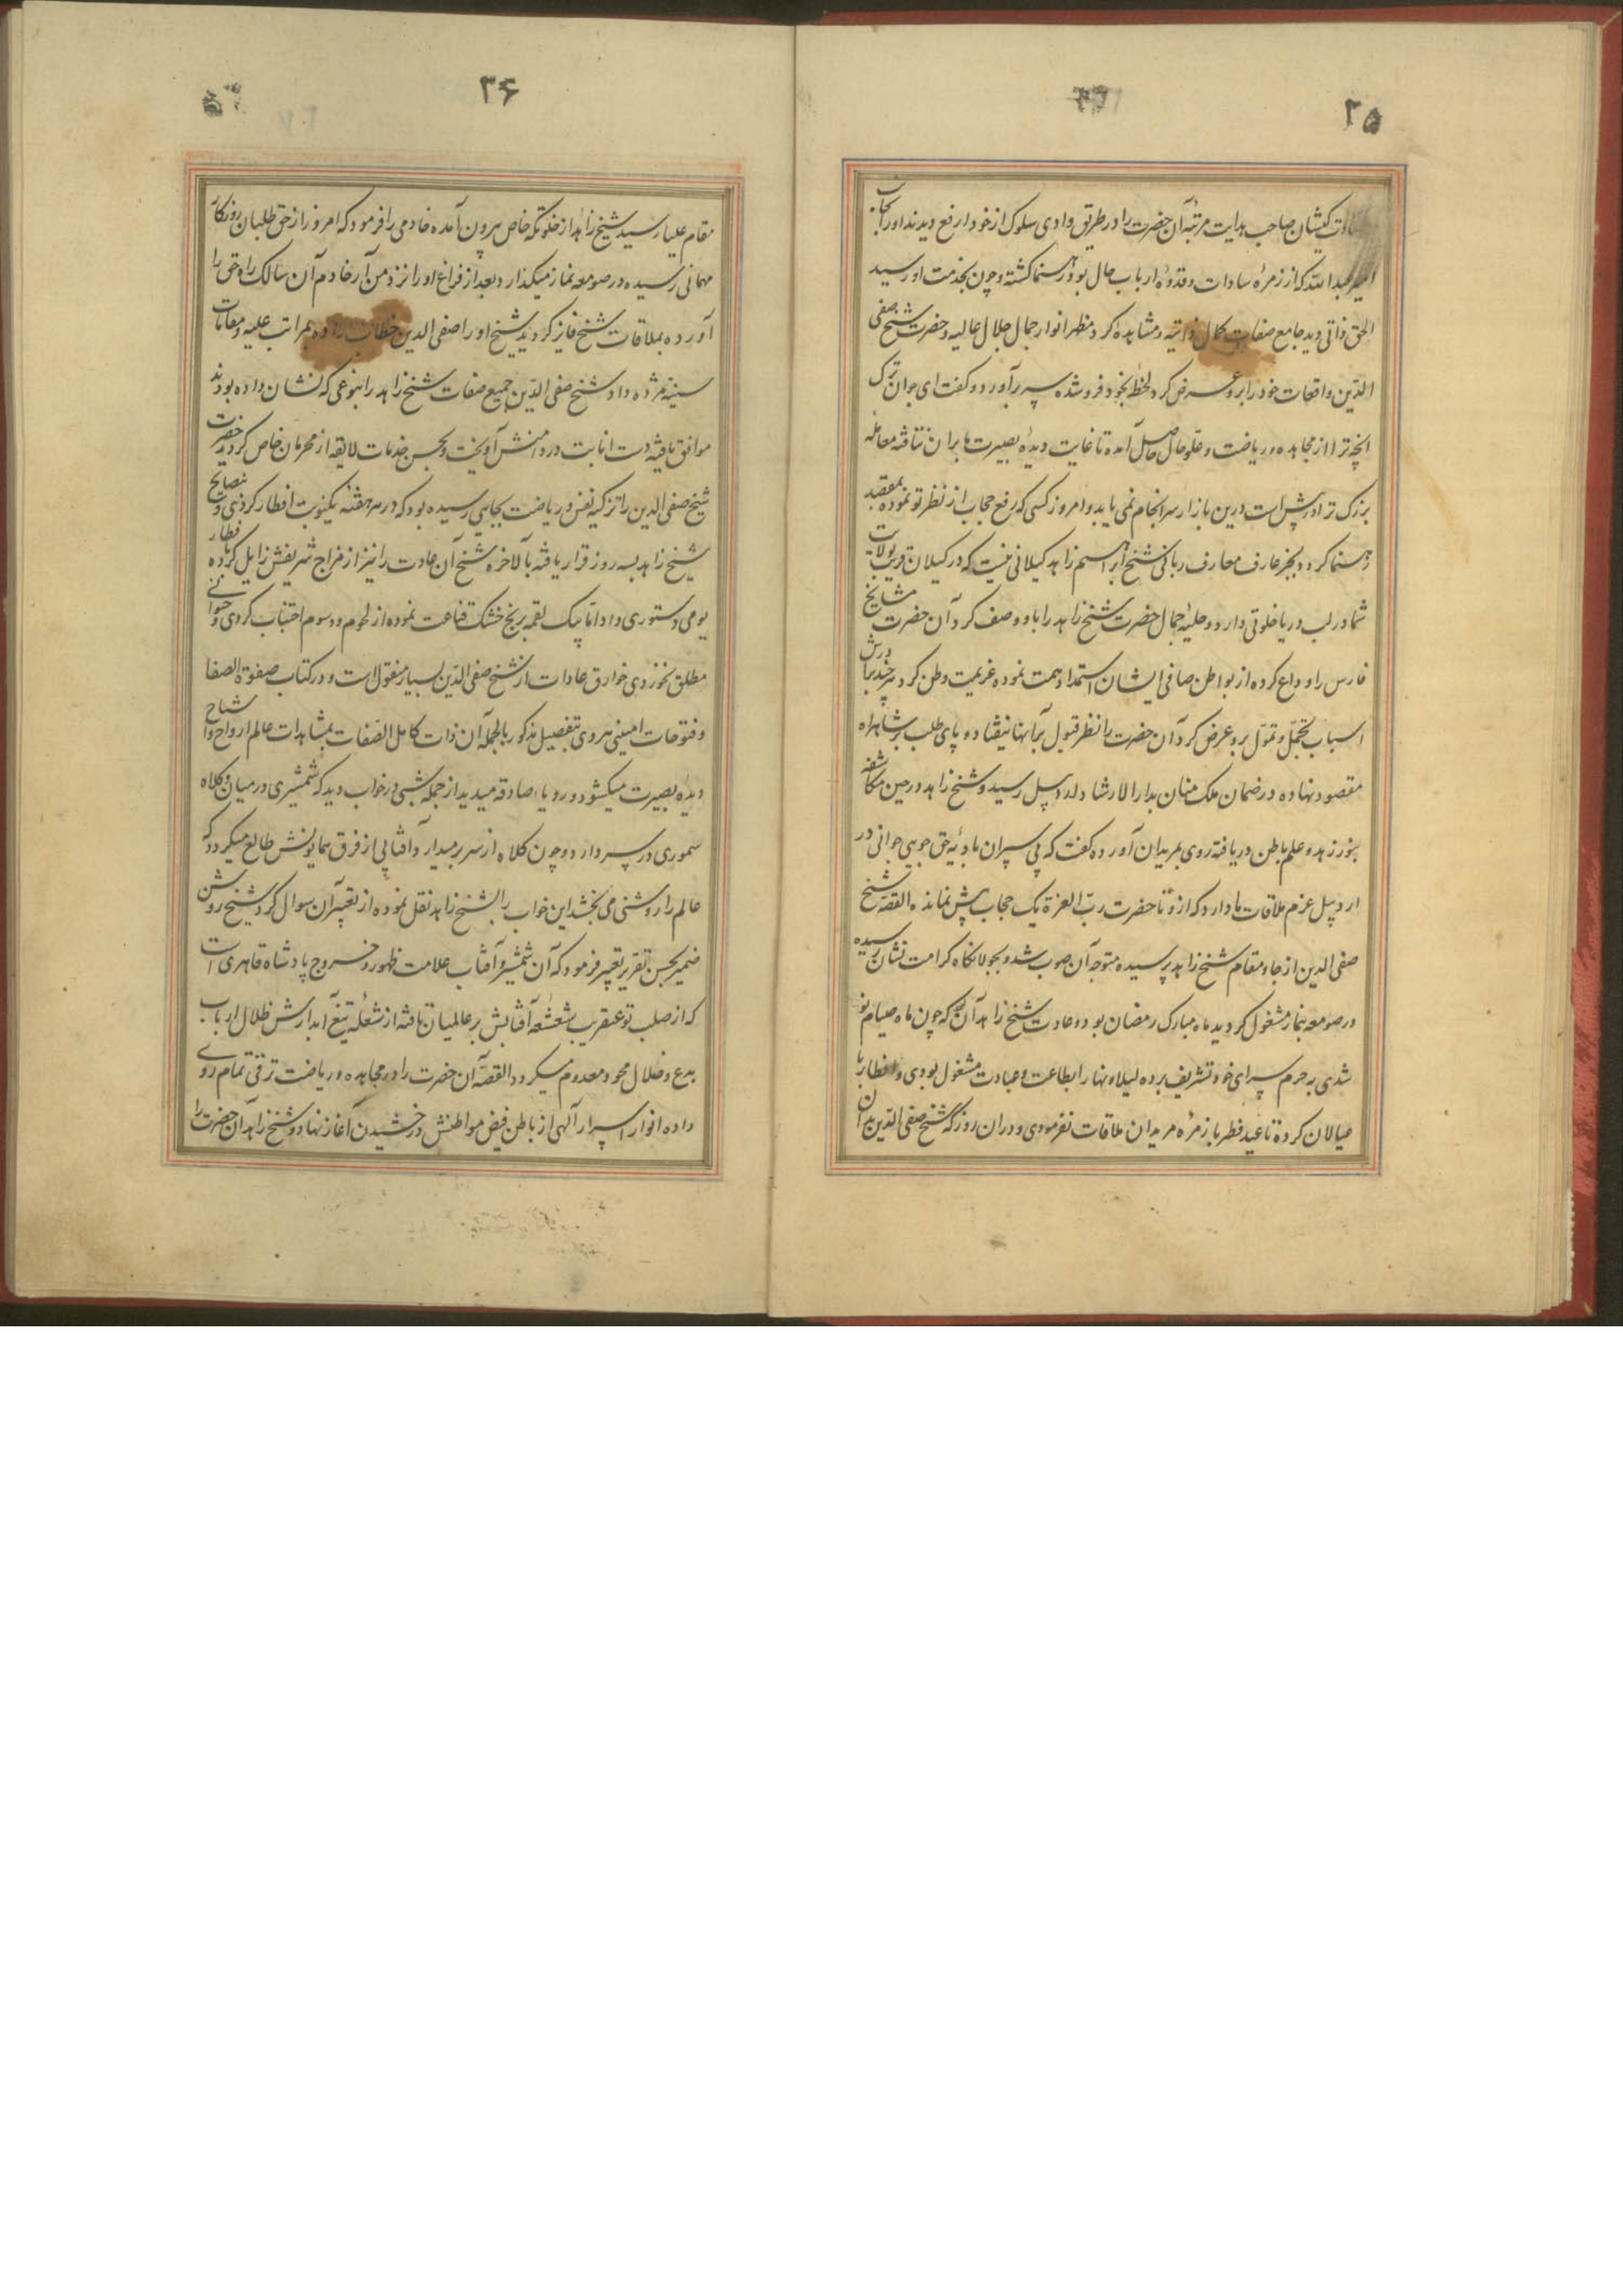 ۲۵
کیشان صاحب هدایت مرتبهٔ آن حضرت را در طریق وادی سلوک از خود ارفع دیدند او را بجانب
امیر عبدالله که از زمرهٔ سادات و قدوهٔ ارباب حال بود رهنما کشته و چون بخدمت او رسید
الحق ذاتی دید جامع صفات کمال ذاتیه و مشاهده کرد مظهر انوار جمال جلال عالیه و حضرت شیخ صفی
الدین واقعات خود را برو عرض کرد لحظهٔ بخود فرو شده سر برآورد و کفت ای جوان ترک
انچه ترا از مجاهده و ریاضت و علو حال حاصل آمده تا غایت دیدهٔ بصیرت ما بران نتافته معامله
بزرک ترا در پیش است درین بازار سرانجام نمی یابد و امروز کسی که رفع حجاب از نظر تو نموده بمقصد
رهنما کردد بجز عارف معارف ربانی شیخ ابراهیم زاهد کیلانی نیست که در کیلان قریب بولایت
شما در لب دریا خلوتی دارد و حلیهٔ جمال حضرت شیخ زاهد را باو وصف کرد آن حضرت مشایخ
فارس را وداع کرده از بواطن صافی ایشان استمداد همت نموده عزیمت وطن کرد هرچند برادرش
اسباب تجمل و تمول برو عرض کرد آن حضرت را نظر قبول برآنها نیفتاد و پای طلب بر شاهراه
مقصود نهاده در ضمان ملک منان بدارالارشاد اردبیل رسید و شیخ زاهد در حین مکاشفه
بنور زهد و علم باطن دریافته روی بمریدان آورده کفت که پی سپران بادیهٔ حق جویی جوانی در
اردبیل عزم ملاقات ما دارد که ازو تا حضرت رب العزة یک حجاب بیش نمانده القصه شیخ
صفی الدین از جا و مقام شیخ زاهد پرسیده متوجه آن صوب شد و بجولانکاه کرامت نشان رسیده
در صومعه بنماز مشغول کردید ماه مبارک رمضان بود و عادت شیخ زاهد آن که چون ماه صیام نو
شدی به حرم سرای خود تشریف برده لیلا و نهارا بطاعت و عبادت مشغول بودی و افطار با
عیالان کرده تا عید فطر با زمرهٔ مریدان ملاقات نفرمودی و دران روز که شیخ صفی الدین بدان
۲۶
مقام علیا رسید شیخ زاهد از خلوتکه خاص بیرون آمده خادمی را فرمود که امروز از حق طلبان روزکار
مهمانی رسیده در صومعه نماز میکذارد بعد از فراغ او را نزد من آر خادم آن سالک راه حق را
آورده بملاقات شیخ فایز کردید شیخ او را صفی الدین خطاب داده بمراتب علیه و مقامات
سنیه مژده داد شیخ صفی الدین جمیع صفات شیخ زاهد را بنوعی که نشان داده بودند
موافق یافته دست انابت در دامنش آویخت و بحسن خدمات لایقه از محرمان خاص کردید حضرت
شیخ صفی الدین را تزکیه نفس و ریاضت بجایی رسیده بود که در هر هفته یکنوبت افطار کردی و بنصایح
شیخ زاهد بسه روز قرار یافته بالاخره شیخ آن عادت را نیز از مزاج شریفش زایل کرده بافطار
یومی دستوری داد اما بیک لقمه برنج خشک قناعت نموده از لحوم و دسوم اجتناب کردی و حیوانی
مطلق نخوردی خوارق عادات از شیخ صفی الدین بسیار منقول است و در کتاب صفوة الصفا
و فتوحات امینی هروی بتفصیل مذکور بالجمله آن ذات کامل الصفات بمشاهدات عالم ارواح و اشباح
دیدهٔ بصیرت میکشود و رویاء صادقه میدید از جمله شبی در خواب دید که شمشیری در میان و کلاه
سموری در سر دارد و چون کلاه از سر برمیدارد آفتابی از فرق همایونش طالع میکردد که
عالم را روشنی می بخشد این خواب را بشیخ زاهد نقل نموده از تعبیر آن سوال کرد شیخ روشن
ضمیر بحسن تقریر تعبیر فرمود که آن شمشیر و آفتاب علامت ظهور و خروج پادشاه قاهری است
که از صلب تو عنقریب شعشعه آفتابش بر عالمیان تافته از شعلهٔ تیغ آبدارش ظلال ارباب
بدع و ضلال محو و معدوم میکردد القصه آن حضرت را در مجاهده و ریاضت ترقی تمام روی
داده انوار اسرار آلهی از باطن فیض مواطنش درخشیدن آغاز نهاد و شیخ زاهد آن حضرت را